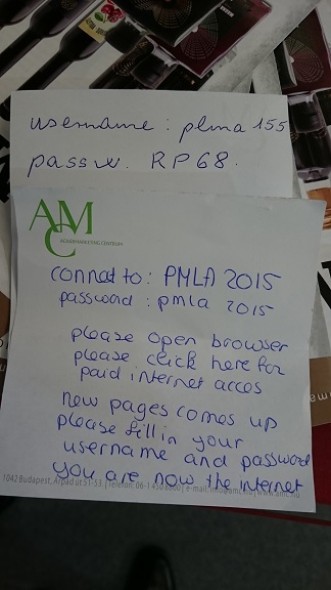 username : plma 155
passw. RP68.
AMC
AGRÁRMARKETING CENTRUM
connect to : PMLA 2015
password : pmla 2015
please open browser
please click here for
paid internet acces
new pages comes up
please fill in your
username and password
you are now the internet
1042 Budapest, Árpád út 51-53. | Telefon: 06-1